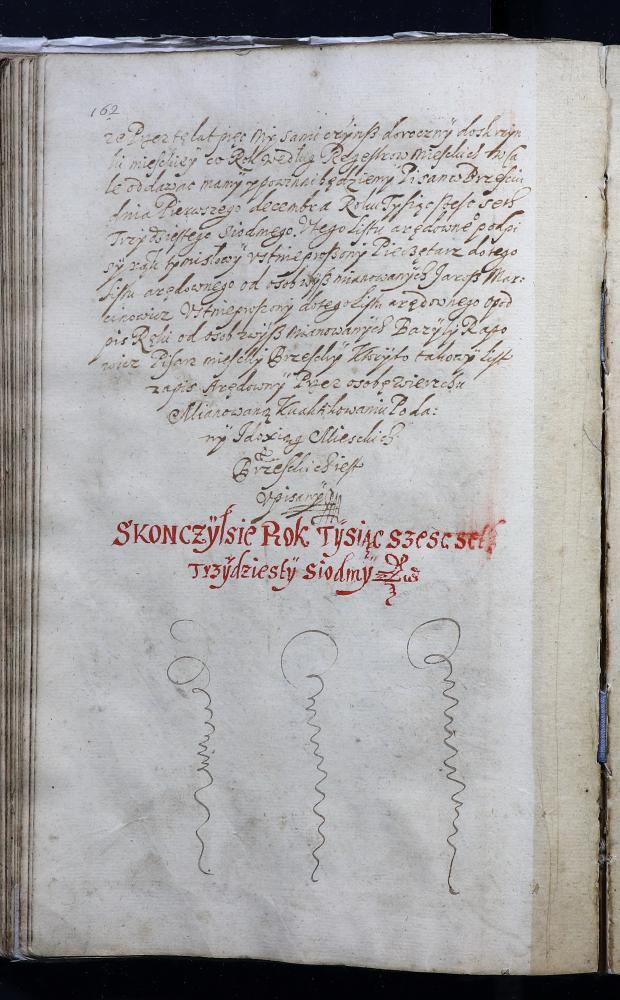 162
ze Przez te lat pięc My sami czynß doroczny do skrzyn
ki mieskiey co Rok według Regestrow Mieskich
le oddawac mamy y powinni będziemy Pisan w Brzesciu
dnia Pierwszego decembra Roku Tysiąc szesc seth
Trzydziestego Siodmego. V tego listu arędowne° podpi
sy rąk tymi słowy Vstnie proßony Pieczętarz do tego
listu arędownego od osob wyß mianowanych Jarosß Mar:
cinowicz Vstnie proßony do tego listu arędownego o pod
pis Ręki od osob zwyß mianowanych Bazyly
wicz Pisarz mieski Brzeski Ktoryto takowy list
zapis Arędowny Przez osobę wierzchu
Mianowaną Ku aktikowaniu Poda:
ny J do xiąg Mieskich
Brzeskich iest
Vpisany
SKONCZYŁ sie Rok Tysiąc szesc seth
Trzydziesty siodmy